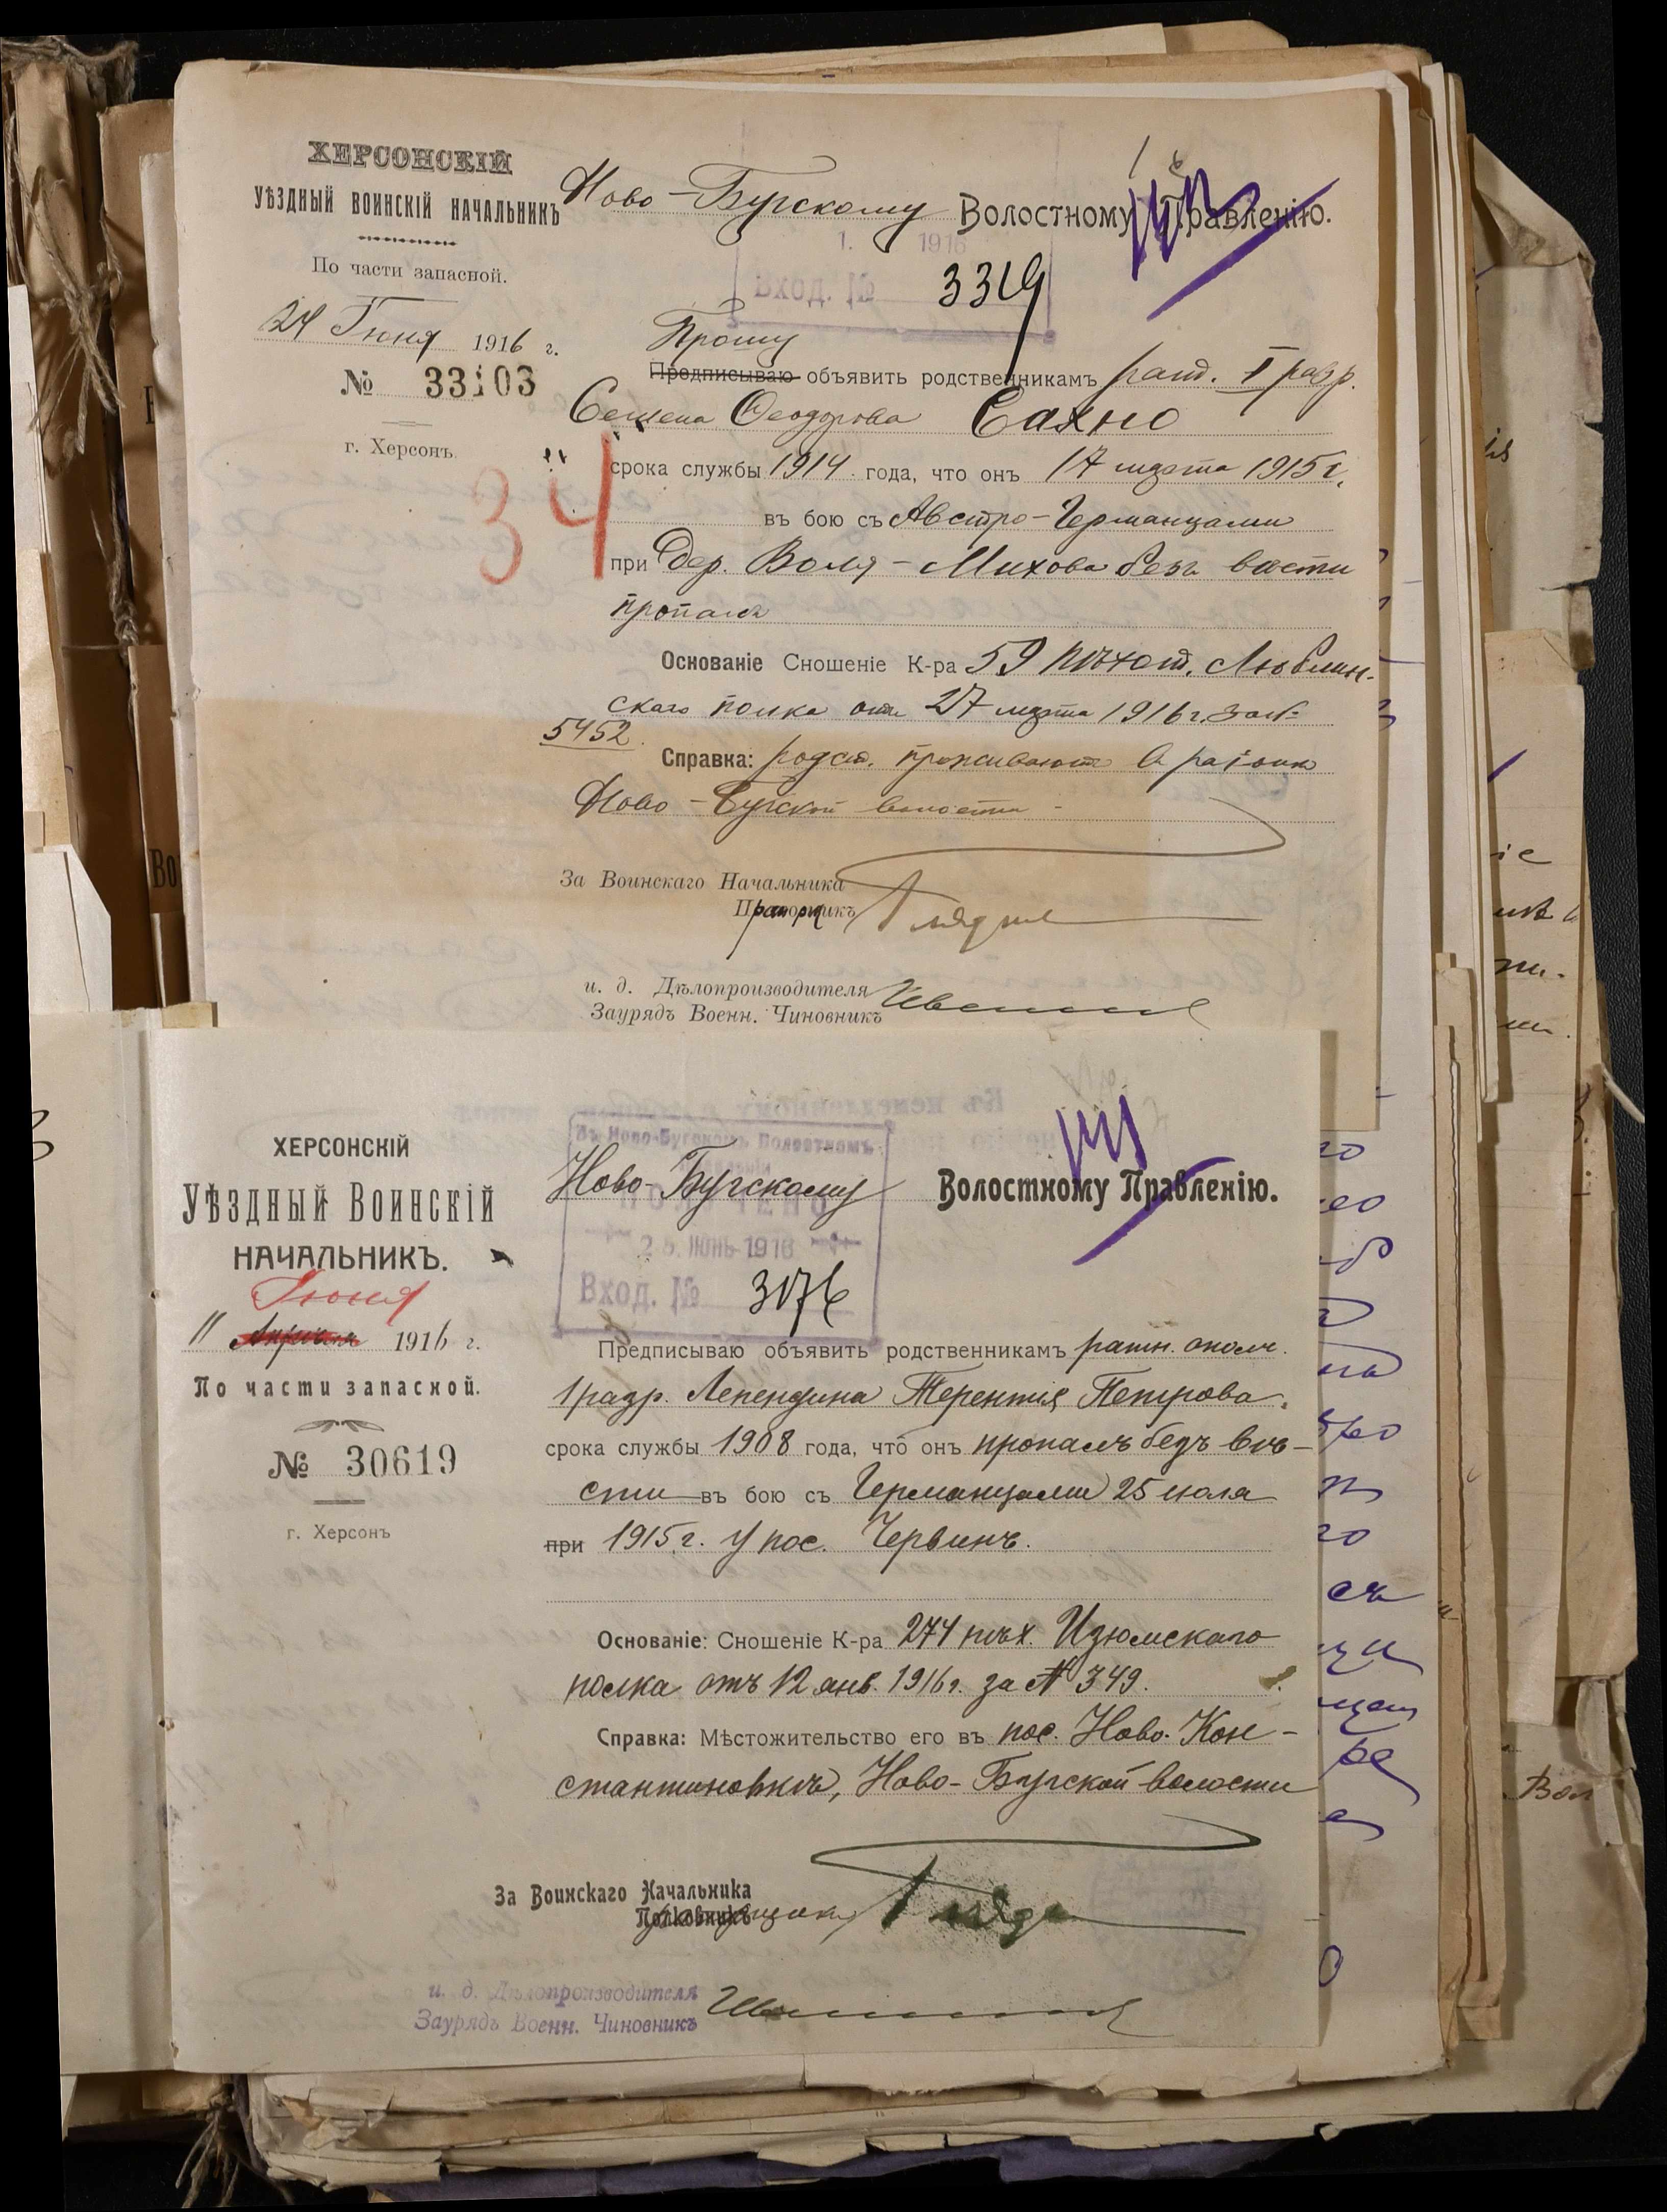 ХЕРСОНСКІЙ
УѢЗДНЫЙ ВОИНСКІЙ НАЧАЛЬНИКЪ
По части запасной.
24 Іюня 1916 г.
№ 33103
г. Херсонъ.
Ново-Бугскому Волостному Правленію.
1. 1916
Вход. № 3319
Прошу
Предписываю объявить родственникамъ рат. I разр.
Семена Феодорова Саяно
срока службы 1914 года, что онъ 17 марта 1915 г.
въ бою съ Австро-Германцами
при дер. Воля-Михова безъ вѣсти
пропалъ
34
Основаніе Сношеніе К-ра 59 пѣхот. Люблин-
скаго полка отъ 27 марта 1916 г. за №
5452
Справка: родст. проживаютъ въ раіонѣ
Ново-Бугской волости
За Воинскаго Начальника
Прапорщикъ
и. д. Дѣлопроизводителя
Заурядъ Военн. Чиновникъ
ХЕРСОНСКІЙ
УѢЗДНЫЙ ВОИНСКІЙ
НАЧАЛЬНИКЪ.
Іюня
11 Апрѣля 1916 г.
По части запасной.
№ 30619
г. Херсонъ
Въ Ново-Бугскомъ Волостномъ
Правленіи
ПОЛУЧЕНО
25. ИЮНЬ 1916
Вход. № 3076
Ново-Бугскому Волостному Правленію.
Предписываю объявить родственникамъ ратн. ополч.
1 разр. Лепендина Терентія Петрова
срока службы 1908 года, что онъ пропалъ безъ вѣ-
сти въ бою съ Германцами 25 іюля
при 1915 г. у пос. Червинъ.
Основаніе: Сношеніе К-ра 274 пѣх. Изюмскаго
полка отъ 12 янв. 1916 г. за № 349.
Справка: Мѣстожительство его въ пос. Ново-Кон-
стантиновкѣ, Ново-Бугской волости
За Воинскаго Начальника
Полковникъ
и. д. Дѣлопроизводителя
Заурядъ Военн. Чиновникъ